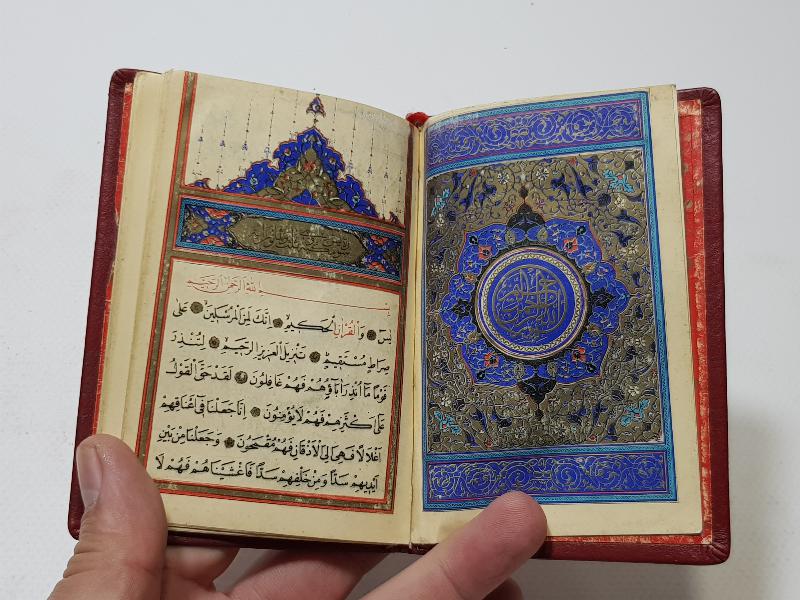 بسم الله الرحمن الرحيم
يس وَالْقُرْاٰنِ الْحَكِيمِ اِنَّكَ لَمِنَ الْمُرْسَلِينَ عَلٰى
صِرَاطٍ مُسْتَقِيمٍ تَنْزِيلَ الْعَزِيزِ الرَّحِيمِ لِتُنْذِرَ
قَوْمًا مَٓا اُنْذِرَ اٰبَٓاؤُهُمْ فَهُمْ غَافِلُونَ لَقَدْ حَقَّ الْقَوْلُ
عَلٰٓى اَكْثَرِهِمْ فَهُمْ لَا يُؤْمِنُونَ اِنَّا جَعَلْنَا فِٓى اَعْنَاقِهِمْ
اَغْلَالًا فَهِىَ اِلَى الْاَذْقَانِ فَهُمْ مُقْمَحُونَ وَجَعَلْنَا مِنْ بَيْنِ
اَيْدِيهِمْ سَدًّا وَمِنْ خَلْفِهِمْ سَدًّا فَاَغْشَيْنَاهُمْ فَهُمْ لَا